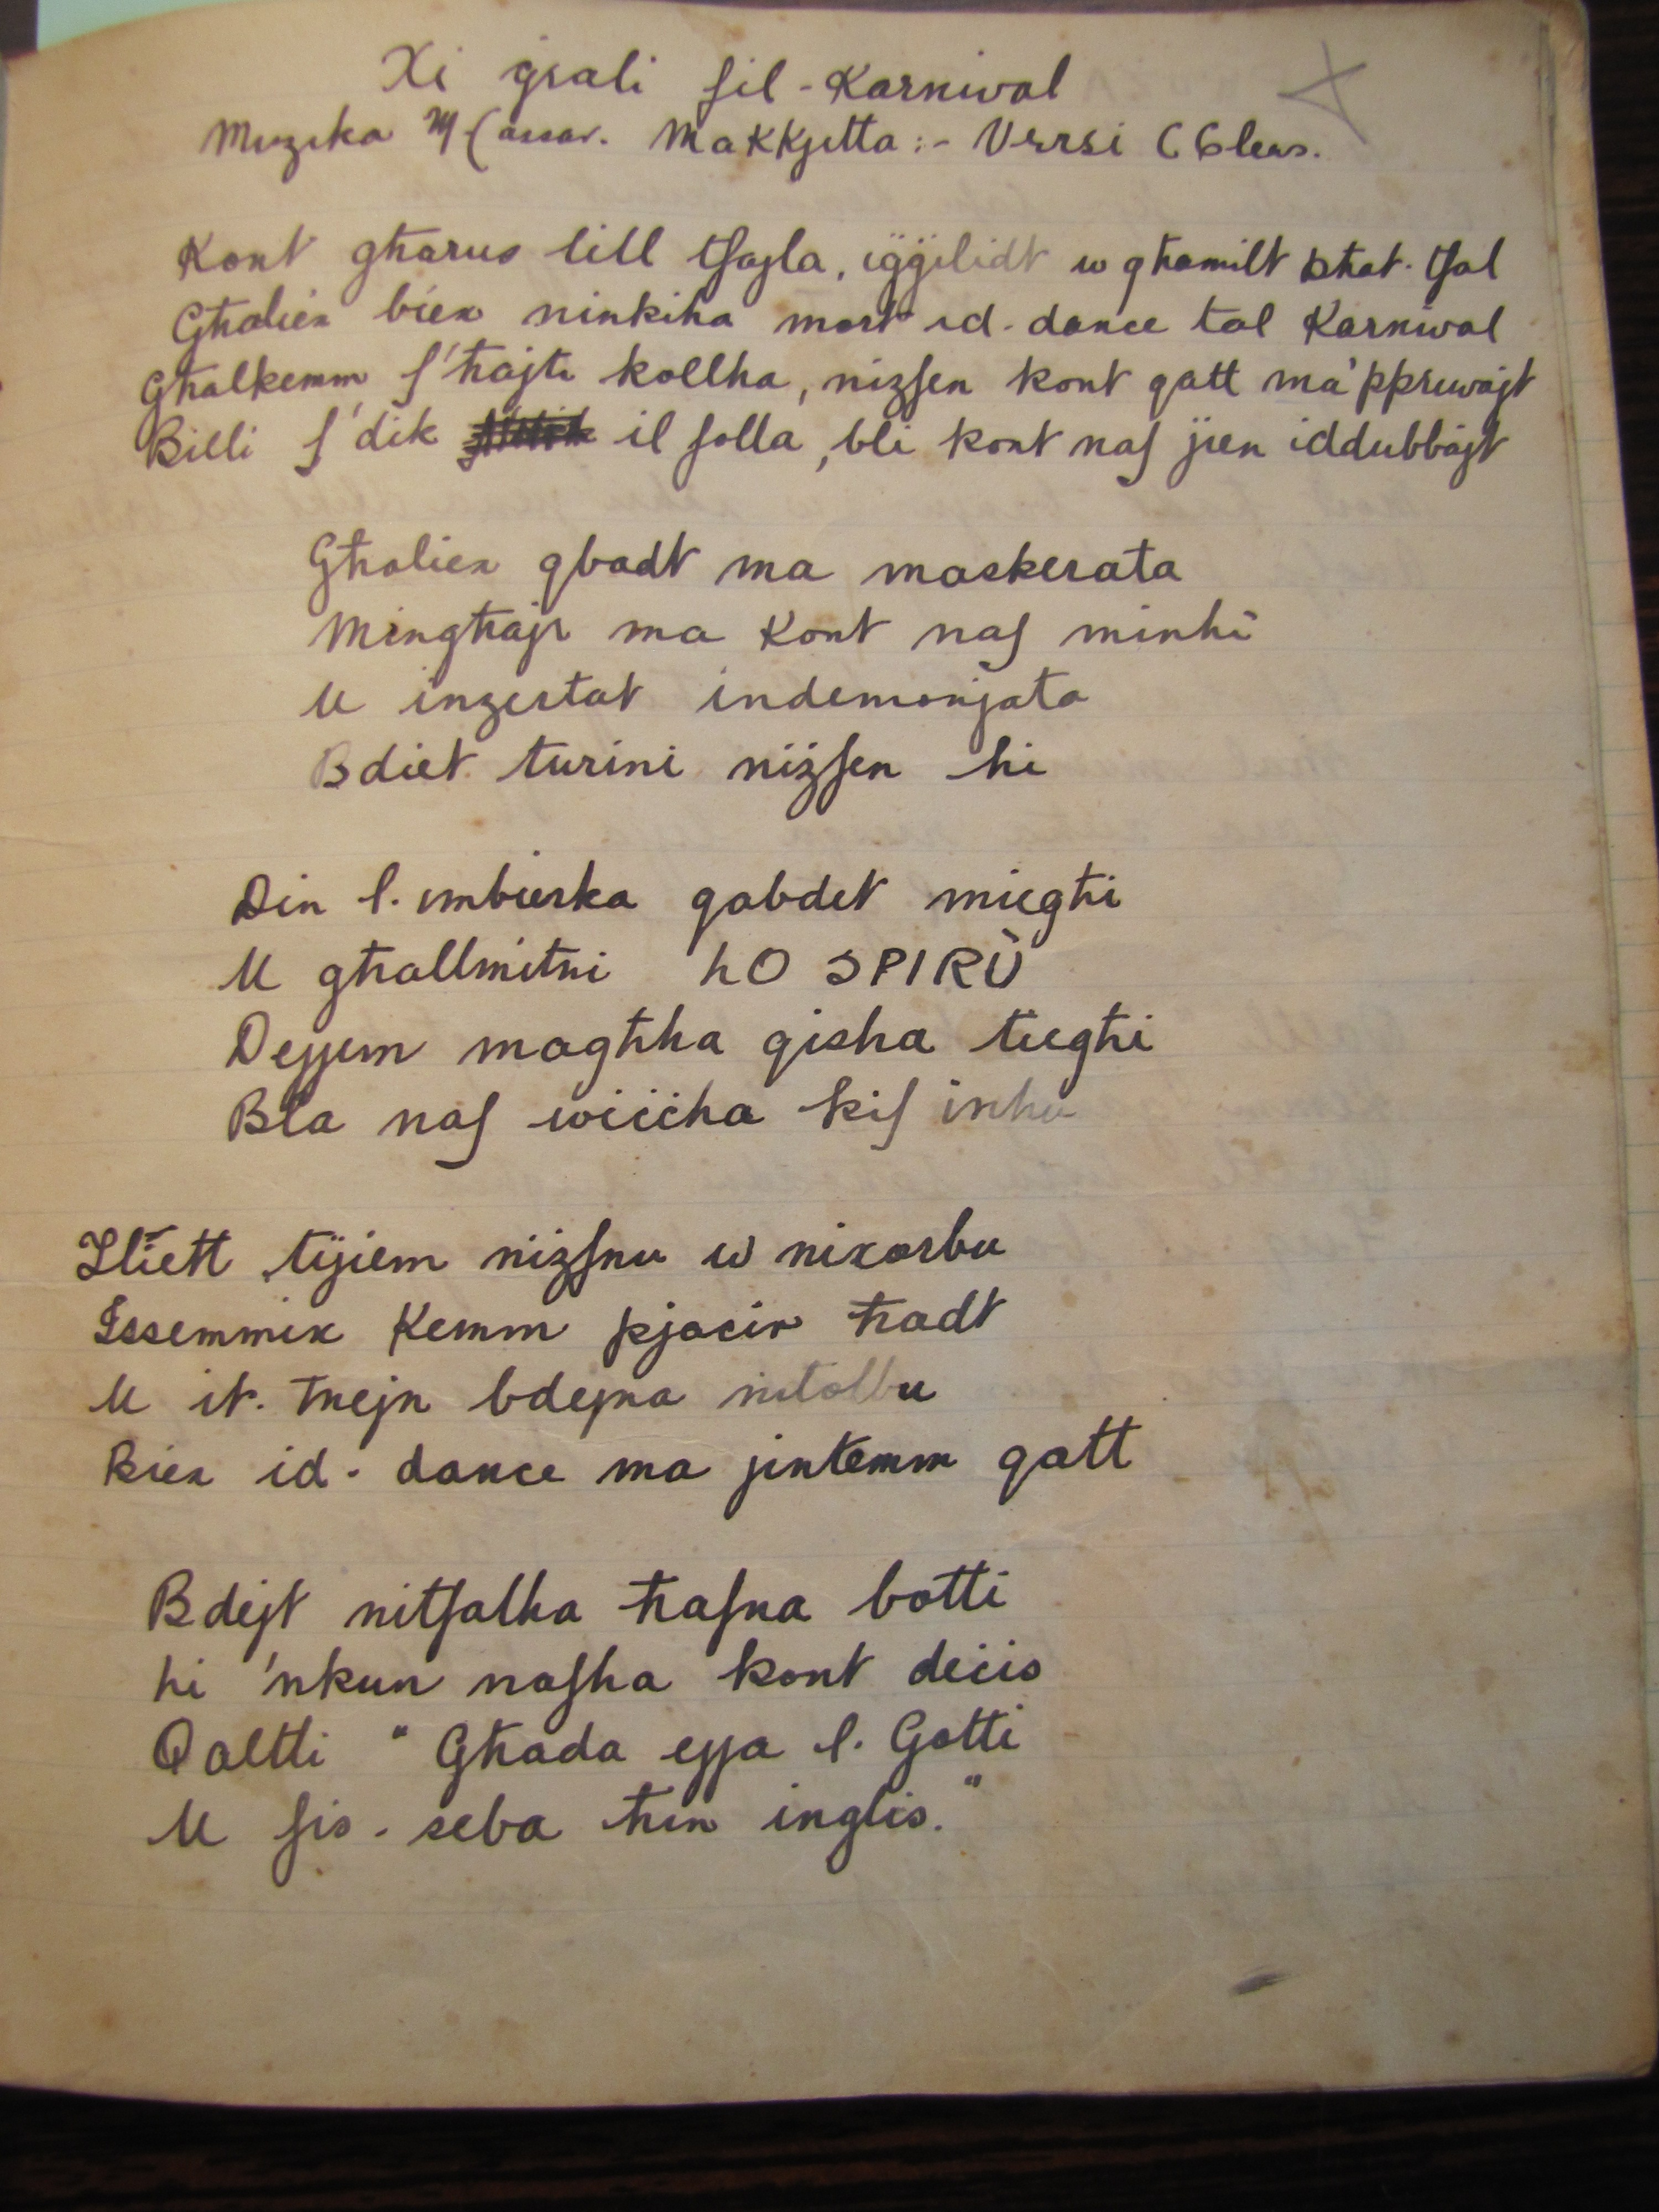 Xi ġrali fil-Karnival
Muzika M. Cassar. Makkjetta :- Versi C Clews.
Kont għarus lill tfajla, iġġilidt w għamilt bħat-tfal
Għaliex biex ninkiha mort id-dance tal Karnival
Għalkemm f'ħajti kollha, niżfen kont qatt ma 'ppruwajt
Billi f'dik il folla, bli kont naf jien iddubbajt
Għaliex qbadt ma maskerata
Mingħajr ma kont naf minhi
U inzertat indemonjata
Bdiet turini niżfen hi
Din l-imbierka qabdet miegħi
U għallmitni hO SPIRÙ
Dejjem magħha qisha tiegħi
Bla naf wiċċha kif inhu
Ilħiett tijiem niżfnu w nixorbu
Issemmix kemm pjacir ħadt
U it-tnejn bdejna nitolbu
Biex id-dance ma jintemm qatt
Bdejt nitfalha ħafna botti
hi 'nkun nafha kont deċiż
Qaltli "Għada ejja l-Gotti
U fis-seba ħin inglis."